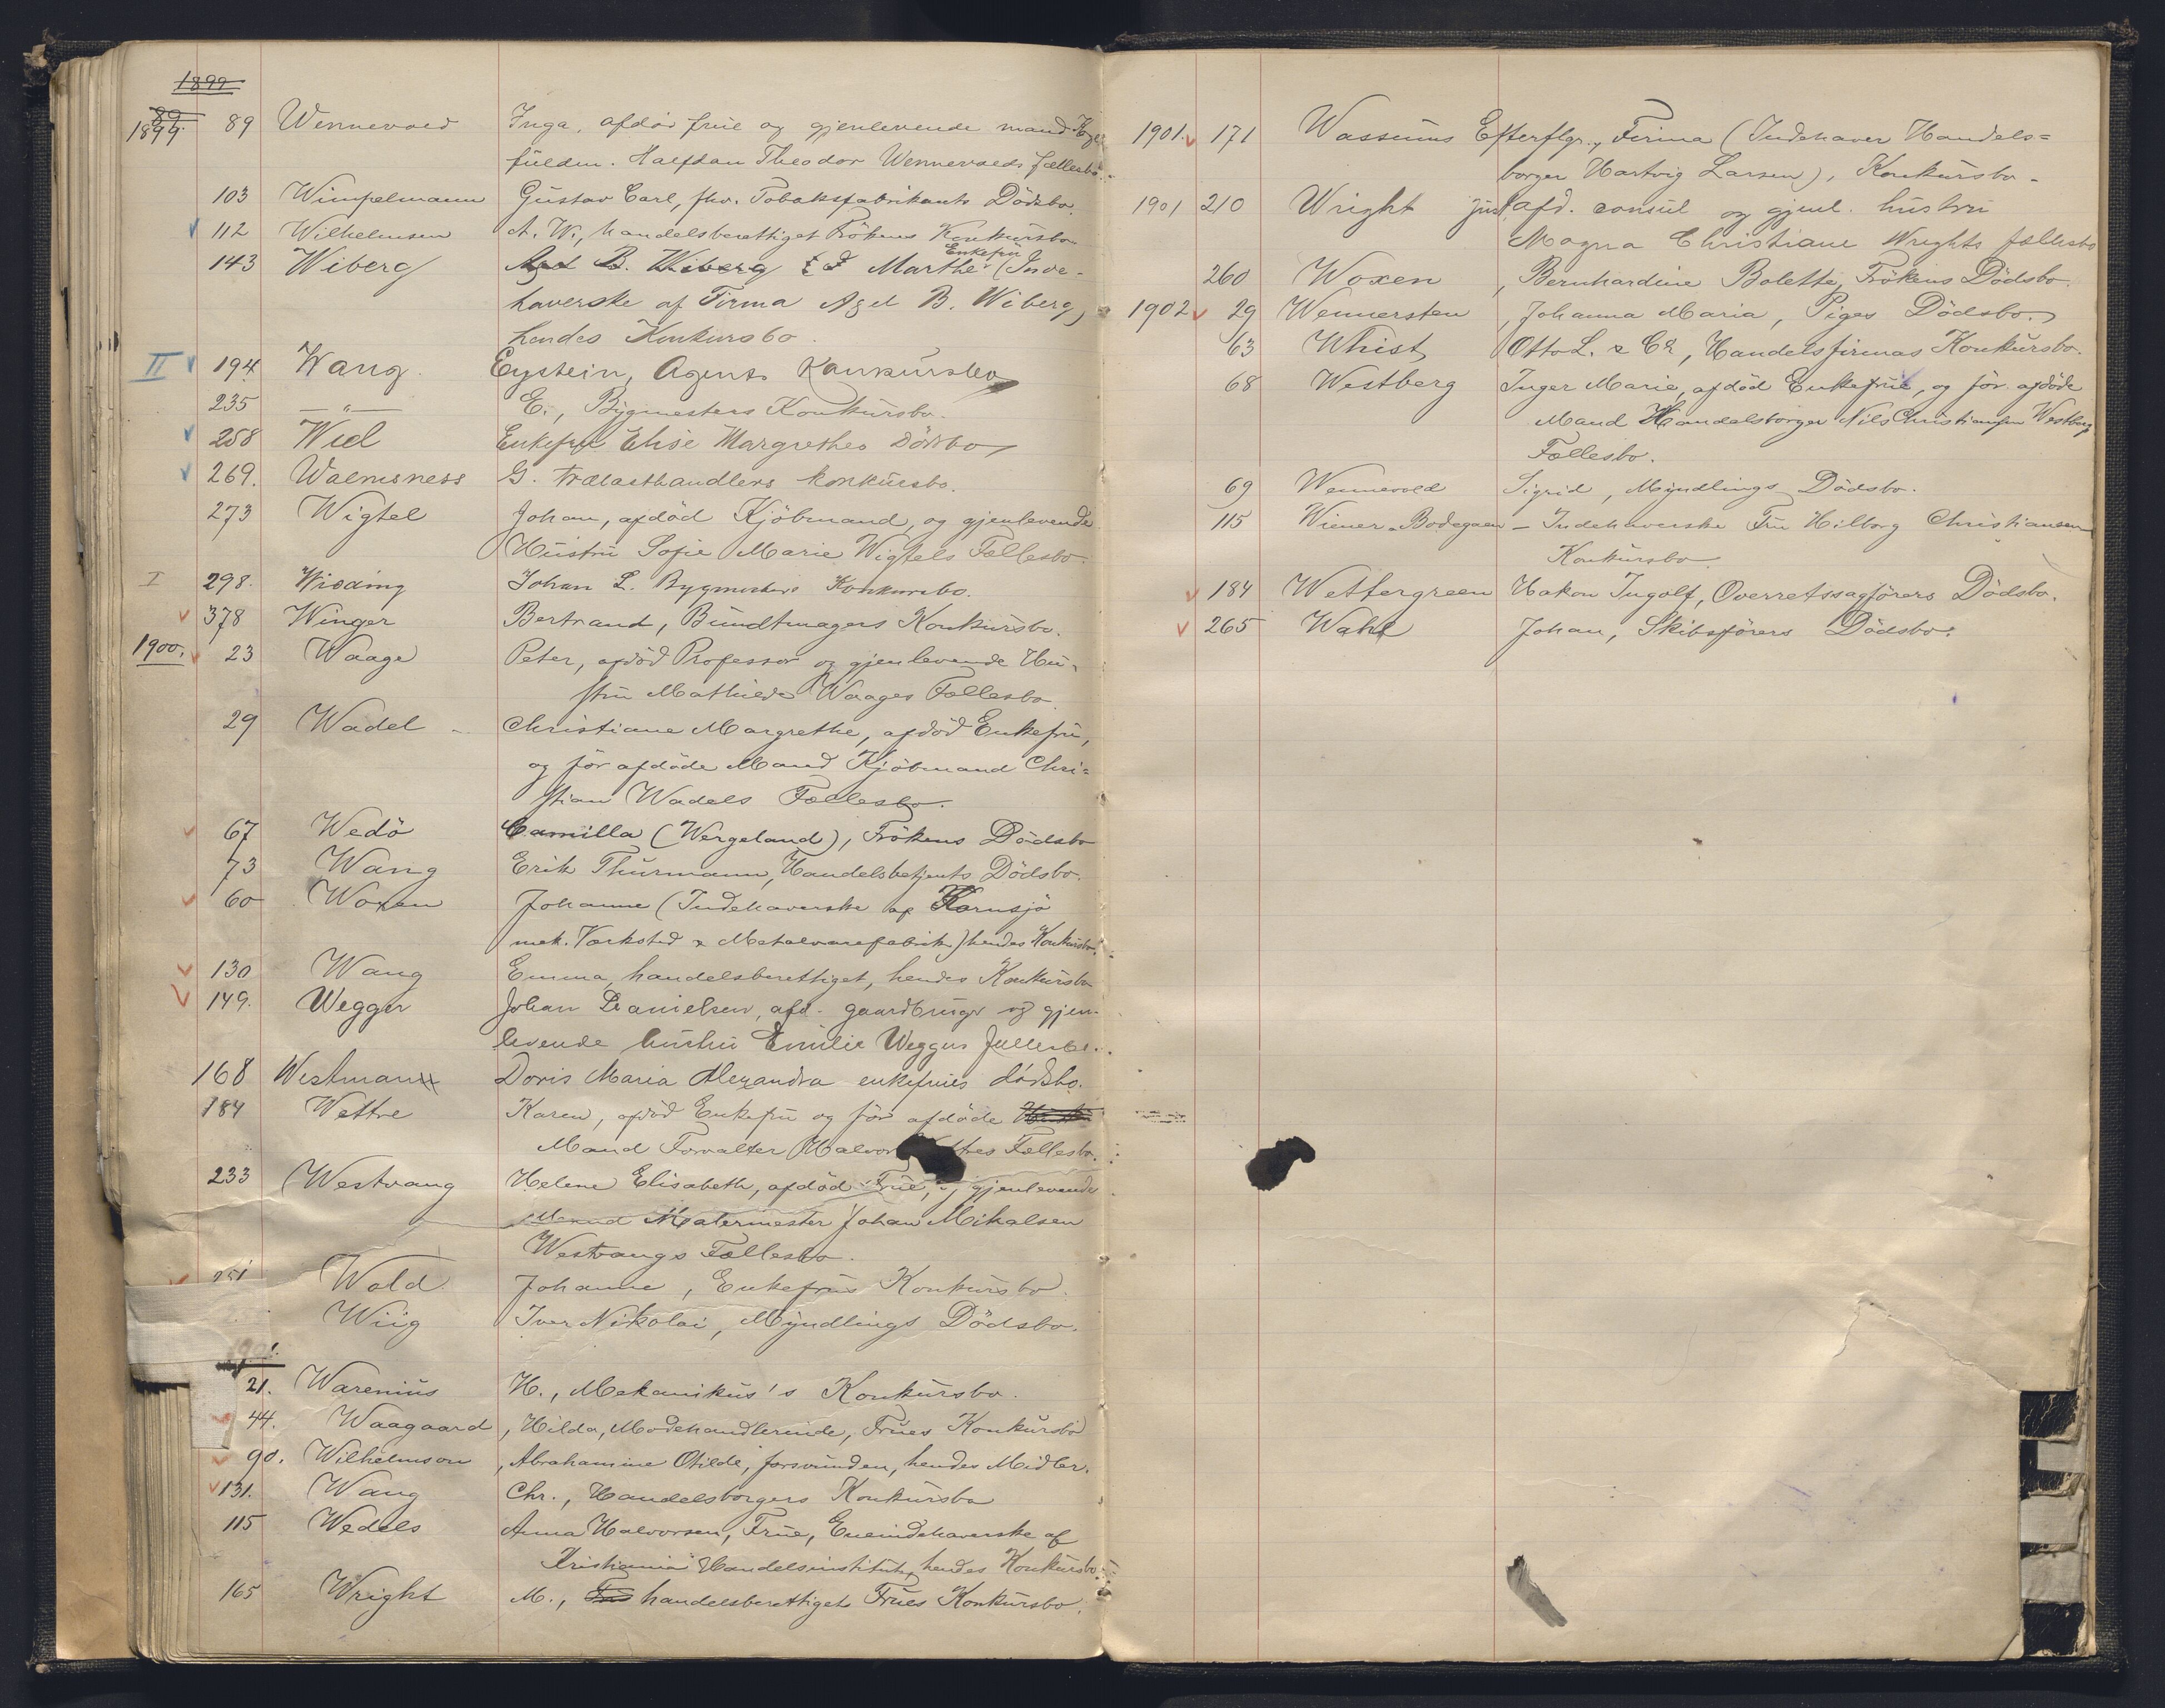 1899
1899. 89 Wennevold Inga, afdød frue og gjenlevende mand
fuldm. Halfdan Theodor Wennevolds fællesbo.
103 Wimpelmann Gustav Carl, fhv. Tobaksfabrikants Dödsbo.
112 Wilhelmsen A. W., handelsberettiget Frökens Konkursbo
143 Wiberg Axel B. Wiberg Marthe Enkefru (Inde-
haverske af Firma Axel B. Wiberg,
hendes Konkursbo.
II 194 Wang. Eystein, Agents Konkursbo
235 —"— E., Bygmesters Konkursbo.
258 Wiel Enkefru Elise Margrethes Dödsbo
269. Walmsness G. trælasthandlers konkursbo.
273 Wigtel Johan, afdöd Kjöbmand, og gjenlevende
Hustru Sofie Marie Wigtels Fællesbo.
I 298. Wisding Johan L. Bygmesters Konkursbo.
378 Winger Bertrand, Bundtmagers Konkursbo.
1900. 23 Waage Peter, afdöd Professor og gjenlevende Hu-
stru Mathilde Waages Fællesbo.
29 Wadel - Christiane Margrethe, afdöd Enkefru,
og för afdöde Mand Kjöbmand Chri=
stian Wadels Fællesbo.
67 Wedö Camilla (Wergeland), Frökens Dödsbo
73 Wang Erik Thurmann, Handelsbetjents Dödsbo.
60 Woxen Johanne (Indehaverske af Kornsjö
mek. Værksted & Metalvarefabrik) hendes Konkursbo.
130 Wang Emma, handelsberettiget, hendes Konkursbo
149. Wegger Johan Danielsen, afd. gaardbruger og gjen-
levende hustru Emilie Weggers fællesbo.
168 Westman Doris Maria Alexandra enkefrues dödsbo.
184 Wettre Karen, afdöd Enkefru og för afdöde Hustru
Mand Forvalter Halvor Wettres Fællesbo.
233 Westvang Helene Elisabeth, afdöd Frue, og gjenlevende
Mand Malermester Johan Mikalsen
Westvangs Fællesbo.
251 Wold Johanne, Enkefrus Konkursbo.
Wiig Iver Nikolai, Myndlings Dödsbo.
1901.
21. Warenius H., Mekanikus's Konkursbo.
44. Waagaard, Hilda, Modehandlerinde, Frues Konkursbo
90. Wilhelmson, Abrahamine Otilde, forsvunden, hendes Midler.
131. Wang Chr., Handelsborgers Konkursbo
115 Wedels Anna Halvorsen, Frue, Eneindehaverske af
Kristiania Handelsinstitut, hendes Konkursbo
165 Wright M., Fru handelsberettiget Frues Konkursbo.
1901. 171 Wassums Efterflgr., Firma (Indehaver Handels=
borger Hartvig Larsen), Konkursbo-
1901 210 Wright Just, afd. consul og gjenl. hustru
Magna Christiane Wrights fællesbo
260 Woxen, Bernhardine Bolette, Frökens Dödsbo.
1902 29 Wennersten, Johanna Maria, Piges Dödsbo.
63 Whist Otto L. & Co, Handelsfirmas Konkursbo.
68 Westberg Inger Marie, afdöd Enkefrue, og för afdöde
Mand Handelsborger Nils Christiansen Westbergs
Fællesbo.
69 Wennevold Sigrid, Myndlings Dödsbo.
115 Wiener-Bodegaen - Indehaverske Fru Hilborg Christiansen
Konkursbo.
184 Wettergreen Hakon Ingolf, Overretssagförers Dödsbo.
265 Wahl Johan, Skibsförers Dödsbo.